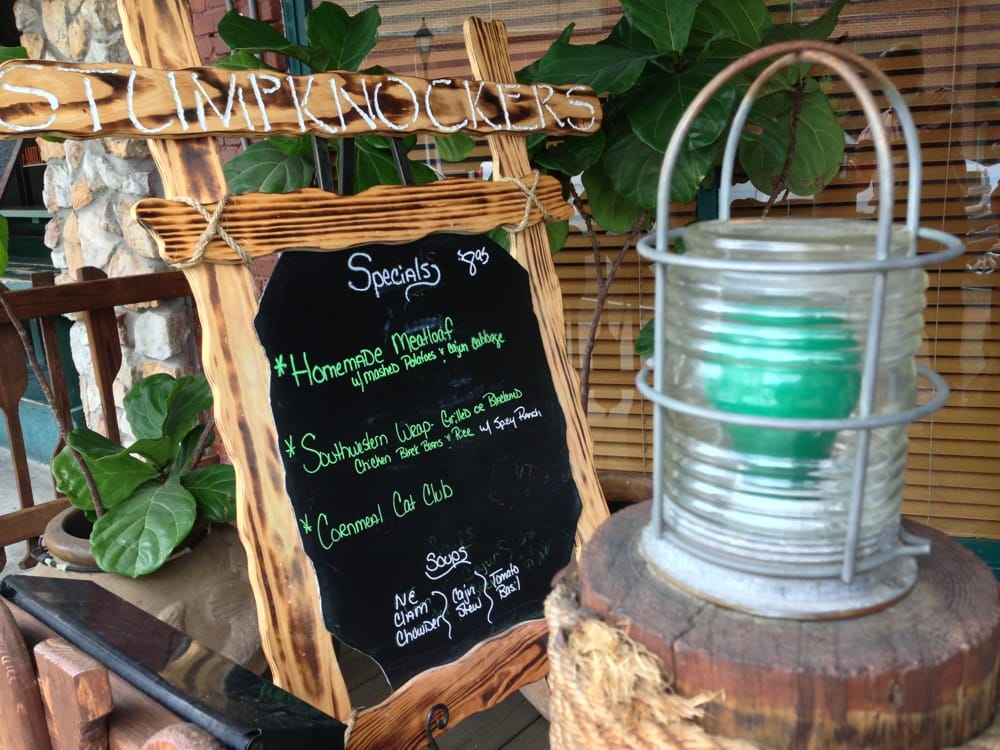 STUMPKNOCKERS
Specials $8.95
* Homemade Meatloaf
w/ mashed Potatoes & Cajun Cabbage
* Southwestern Wrap - Grilled or Blackened
Chicken Black Beans & Rice w/ Spicy Ranch
* Cornmeal Cat Club
Soups
NE
Clam
Chowder
Cajun
Stew
Tomato
Basil